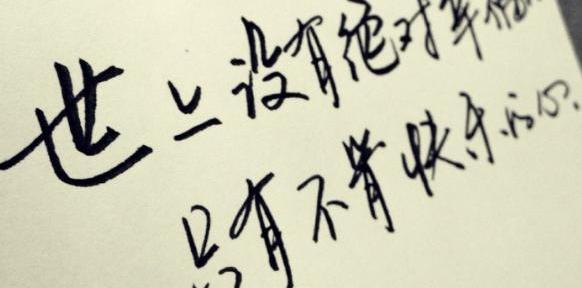 世上没有绝对幸福
只有不肯快乐的心.